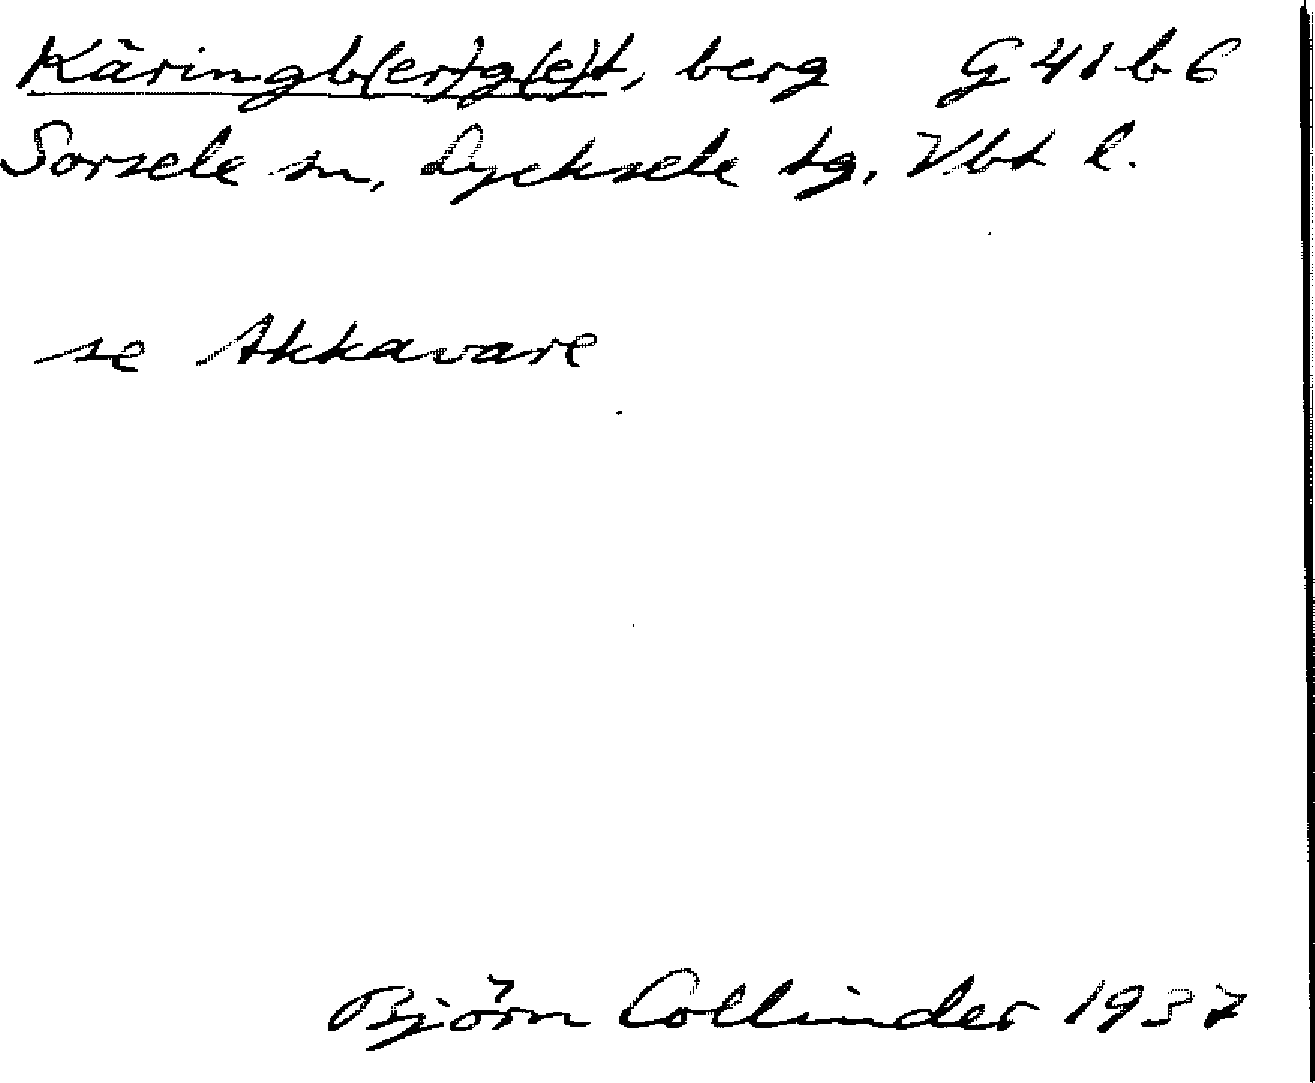 Käringb(er)g(e)t, berg G 41 b 6
Sorsele sn, Lycksele tg, Vbt l.
se Akkavare
Björn Collinder 1937